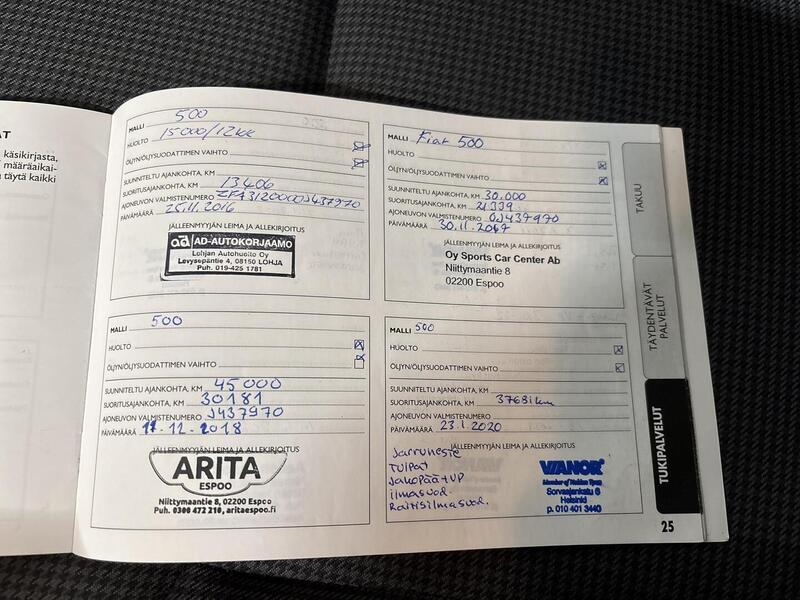 AT
käsikirjasta,
määräaikai-
täytä kaikki
MALLI 500
HUOLTO 15000/12kk
ÖLJYN/ÖLJYSUODATTIMEN VAIHTO
SUUNNITELTU AJANKOHTA, KM
SUORITUSAJANKOHTA, KM 13406
AJONEUVON VALMISTENUMERO ZFA3120000J437970
PÄIVÄMÄÄRÄ 25.11.2016
JÄLLEENMYYJÄN LEIMA JA ALLEKIRJOITUS
ad AD-AUTOKORJAAMO
Lohjan Autohuolto Oy
Levysepäntie 4, 08150 LOHJA
Puh. 019-425 1781
MALLI Fiat 500
HUOLTO
ÖLJYN/ÖLJYSUODATTIMEN VAIHTO
SUUNNITELTU AJANKOHTA, KM 30.000
SUORITUSAJANKOHTA, KM 21339
AJONEUVON VALMISTENUMERO 0J437970
PÄIVÄMÄÄRÄ 30.11.2017
JÄLLEENMYYJÄN LEIMA JA ALLEKIRJOITUS
Oy Sports Car Center Ab
Niittymaantie 8
02200 Espoo
MALLI 500
HUOLTO
ÖLJYN/ÖLJYSUODATTIMEN VAIHTO
SUUNNITELTU AJANKOHTA, KM 45000
SUORITUSAJANKOHTA, KM 30181
AJONEUVON VALMISTENUMERO J437970
PÄIVÄMÄÄRÄ 17.12.2018
JÄLLEENMYYJÄN LEIMA JA ALLEKIRJOITUS
ARITA
ESPOO
Niittymaantie 8, 02200 Espoo
Puh. 0300 472 210, aritaespoo.fi
MALLI 500
HUOLTO
ÖLJYN/ÖLJYSUODATTIMEN VAIHTO
SUUNNITELTU AJANKOHTA, KM
SUORITUSAJANKOHTA, KM 37681km
AJONEUVON VALMISTENUMERO
PÄIVÄMÄÄRÄ 23.1.2020
JÄLLEENMYYJÄN LEIMA JA ALLEKIRJOITUS
Jarruneste
Tulpat
Jakopää+VP
ilmasuod.
Raitisilmasuod.
VIANOR
Member of Nokian Tyres
Sorvaajankatu 6
Helsinki
p. 010 401 3440
TAKUU
TÄYDENTÄVÄT
PALVELUT
TUKIPALVELUT
25